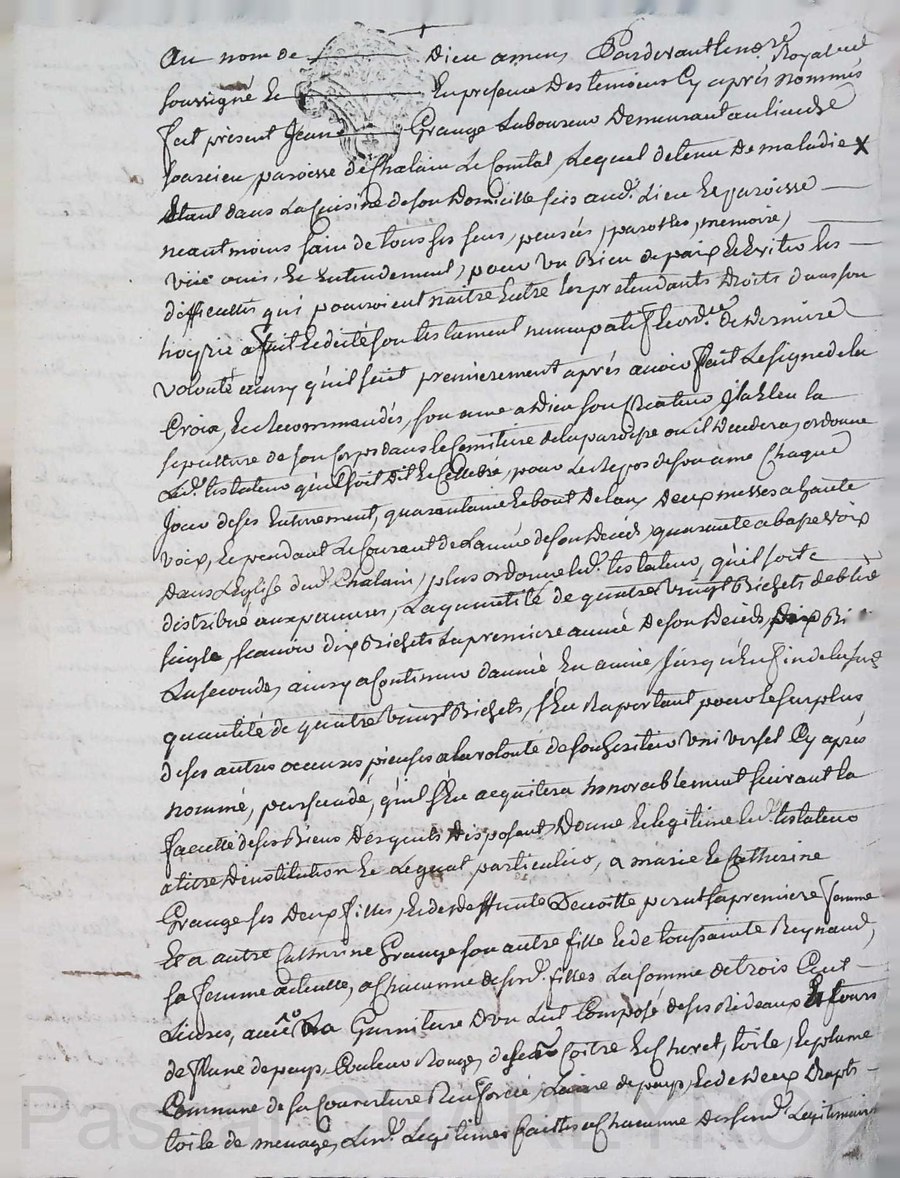 Au nom de Dieu amen Pardevant le no.re Royal
soussigné Et En presence Des temoins Cy après nommés
fut présent Jean Grange Laboureur Demeurant au lieu de
paroisse de Chalain Le Comtal, Lequel detenu De maladie x
Etant dans La Cuisine de son Domicille sis aud. Lieu Et paroisse
neant moins sain de tous ses sens, pensés, parolles, memoire,
vüe ouie, Et Entendement, pour Un Bien de paix Et Eviter les
difficultés qui pouroient naitre Entre les pretendants Droits dans son
hoyrie a fait Et dicté son testament nuncupatif Et ord.re De Derniere
volonté ainsy qu'il suit premierement après avoir fait Le signe de la
Croix, Et Recommandés, son ame a Dieu son Createur Jl a Eleu la
sepulture de son Corps dans le Cemitiere de la paroisse ou il Decedera, ordonne
Led. testateur qu'il soit dit Et Cellebré, pour Le Repos de son ame Chaque
Jour de ses Enterrement, quarantaine Et bout De l'an Deux messes a haute
voix, Et pendant Le Courant de L'année de son Decés, quarante a basse voix
Dans L'Eglise dud. Chalain, plus ordonne led. testateur, qu'il soit
distribué aux pauvres, La quantité de quatre Vingt Bichets de bled
seigle, scavoir dix Bichets La premiere année De son Deceds, Dix Bi
La seconde, ainsy a Continuer d'année En année Jusqu'En fin de lad.
quantité de quatre Vingt Bichets, s'En Raportant pour le surplus
de ses autres oeuvres pieuses a la volonté de son heritier Universel Cy après
nommé, persuadé, qu'il s'En acquitera honorablement suivant la
faculté de ses Biens Desquels Disposant, Donne Et legitime led. testateur
a titre D'institution Et Legat particulier, a marie Et Catherine
Grange ses Deux filles, Et de deffunte Benoitte sa premiere femme
Et a autre Catherine Grange son autre fille Et de toussainte Reynaud,
sa femme actuelle, a Chacune de sesd. filles La somme de trois Cent
Livres, avec La Garniture D'un Lit Composé de ses Rideaux Et tours
de Laine de pays, Couleur Rouge, de son Coitre Et Chevet, toile, Et plume
Commune de sa Couverture Renforcée Laine de pays, Et de Deux Draps
toile de menage, Lesd. Legitimes faittes a Chacune Desd.